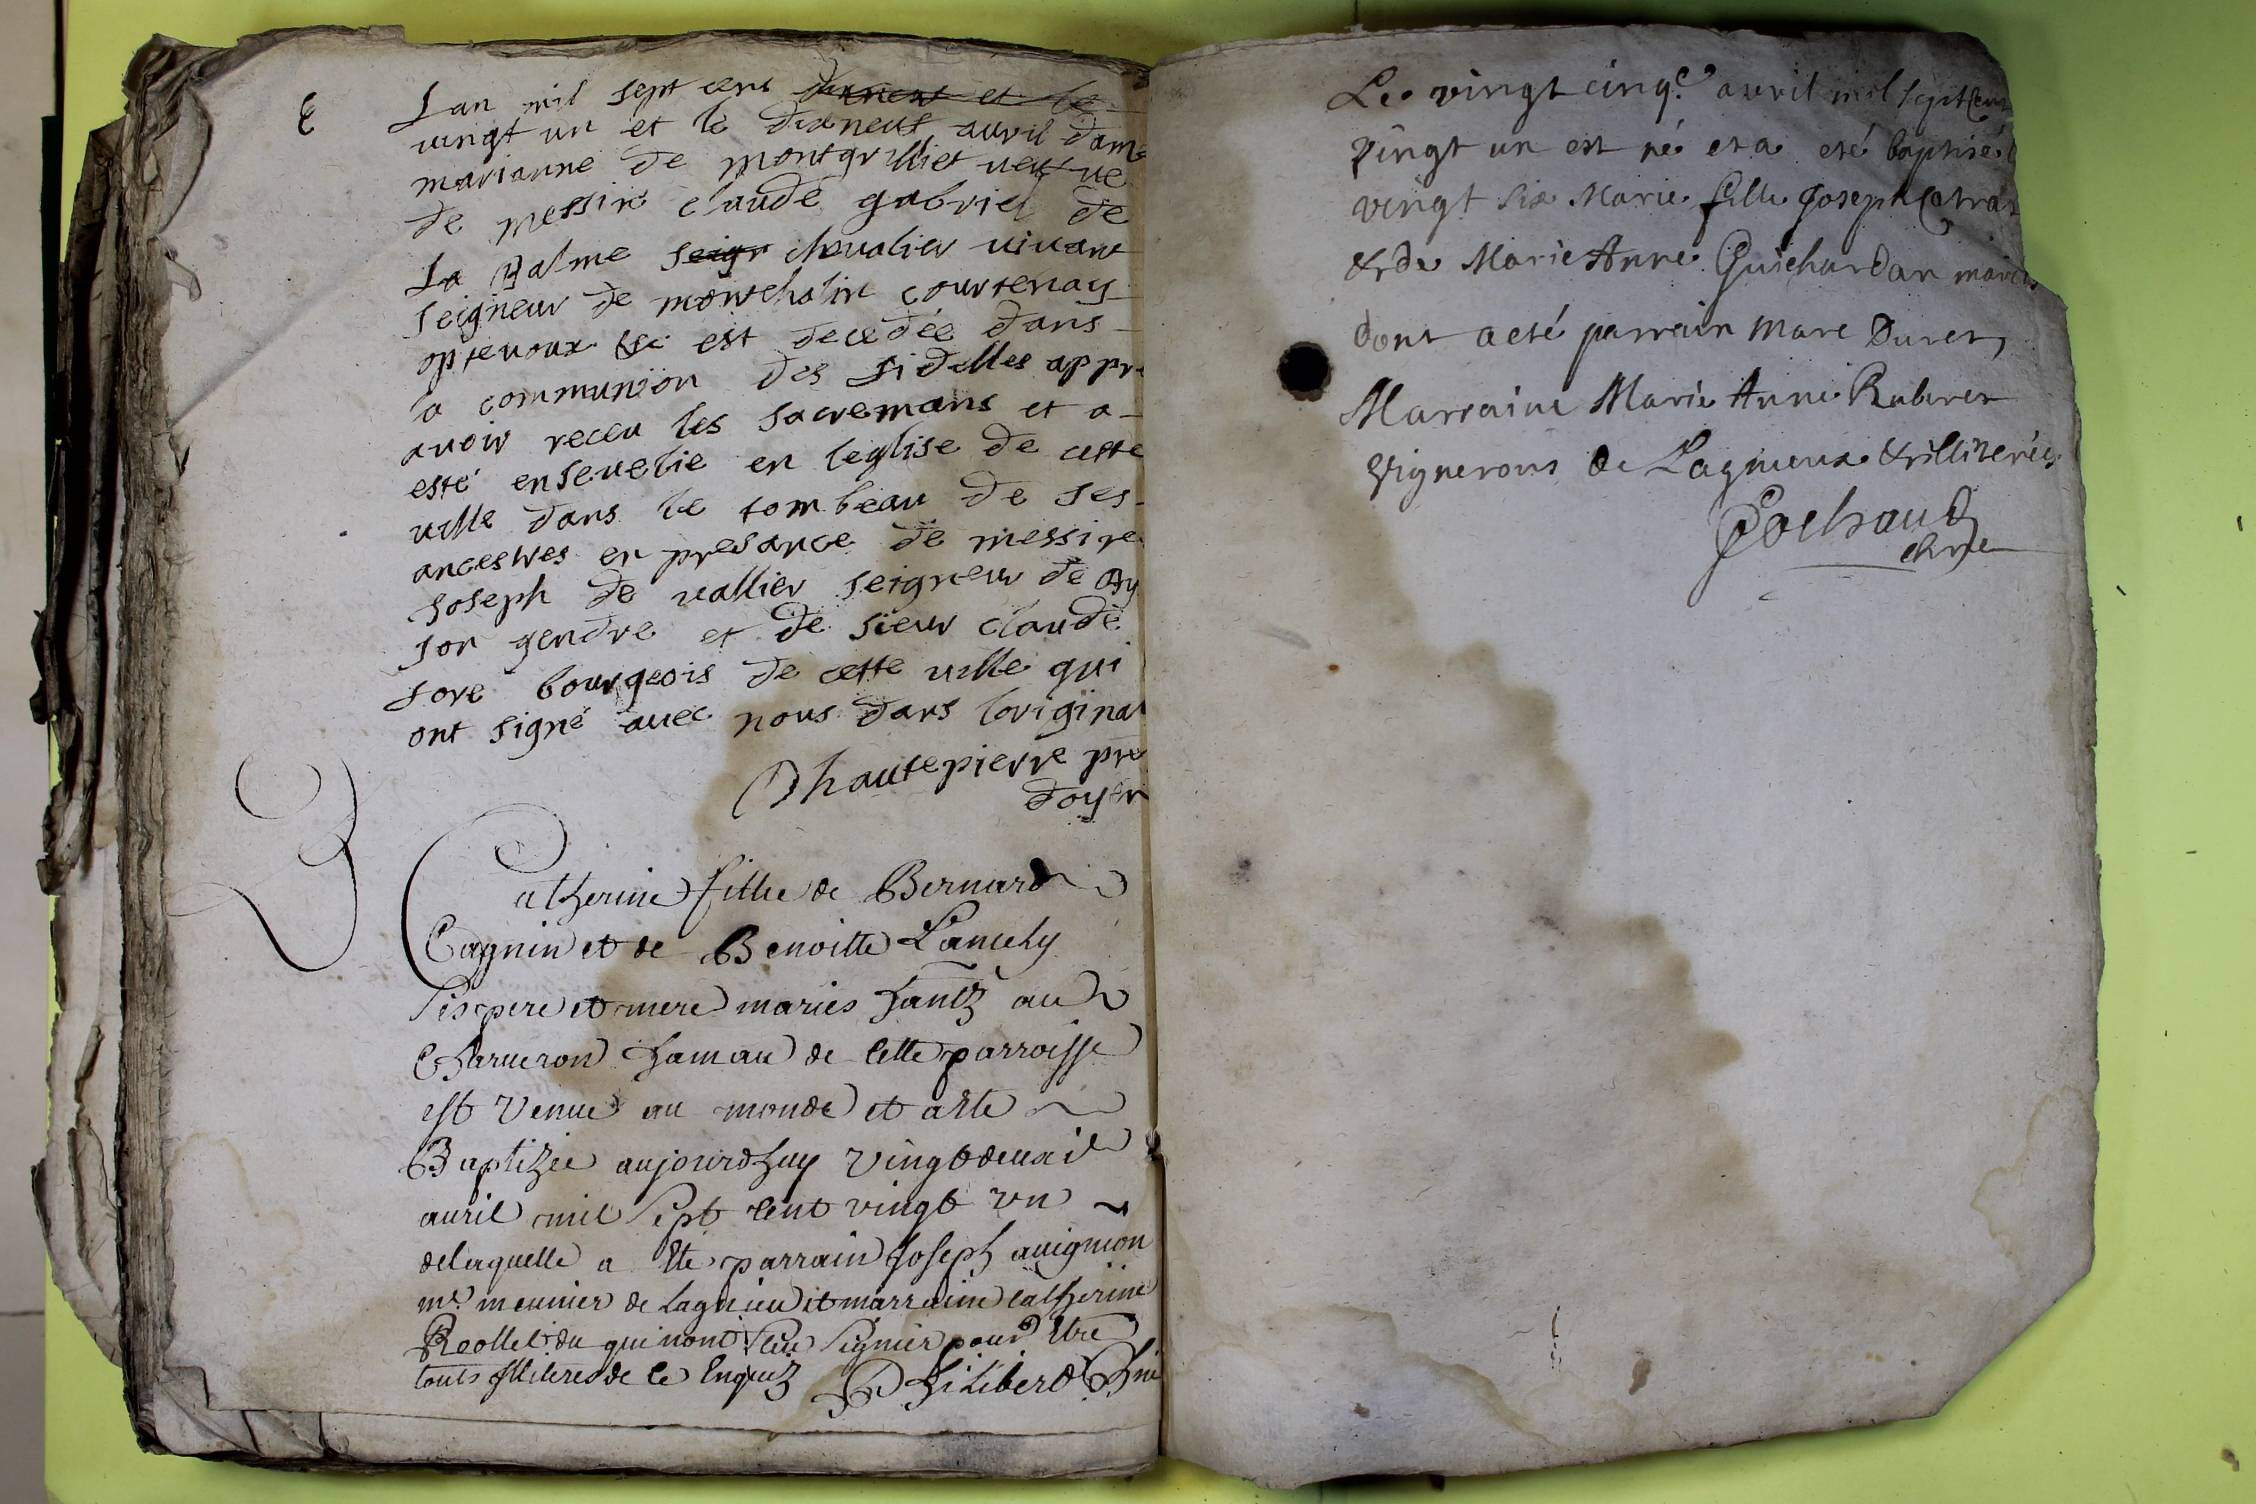 E
Lan mil sept cens dixneuf et le
vingt un et le dixneuf auvril dame
marianne de montgrilliet veufve
de messire claude gabriel de
La Balme seigr chevalier vivant
seigneur de montchalin courtenay
optevoux &c est decedée dans
la communion des fidelles appr
avoir receu les sacremans et a
esté ensevelie en leglise de cette
ville dans le tombeau de ses
ancestres en presance de messire
Joseph de vallier seigneur de By
son gendre et de sieur claude
fore bourgeois de cette ville qui
ont signé avec nous dans loriginal
Dhautepierre pre
doyen
B
Catherine fille de Bernard
Cagnin et de Benoitte Lancely
ses pere et mere maries hantz au
Charveron hamau de cette parroisse
est venue au monde et a ete
Baptizée aujourdhuy vingt deuxie
avril mil sept cent vingt un
de laquelle a ete parrain Joseph avignion
me meunier de Lagnieu et marraine catherine
Reollet du qui nont sceu signer pour etre
touts illiteres de ce enquis Philibert
Le vingt cinqe avril mil sept cent
vingt un est né et a eté baptisé l
vingt six Marie fille Joseph Catra
& de Marie Anne Guichardan mariés
dont a eté parrain Marc Duret,
Marraine Marie Anne Ruberet
vignerons de Lagnieux & illiterés
Cochaud
chne